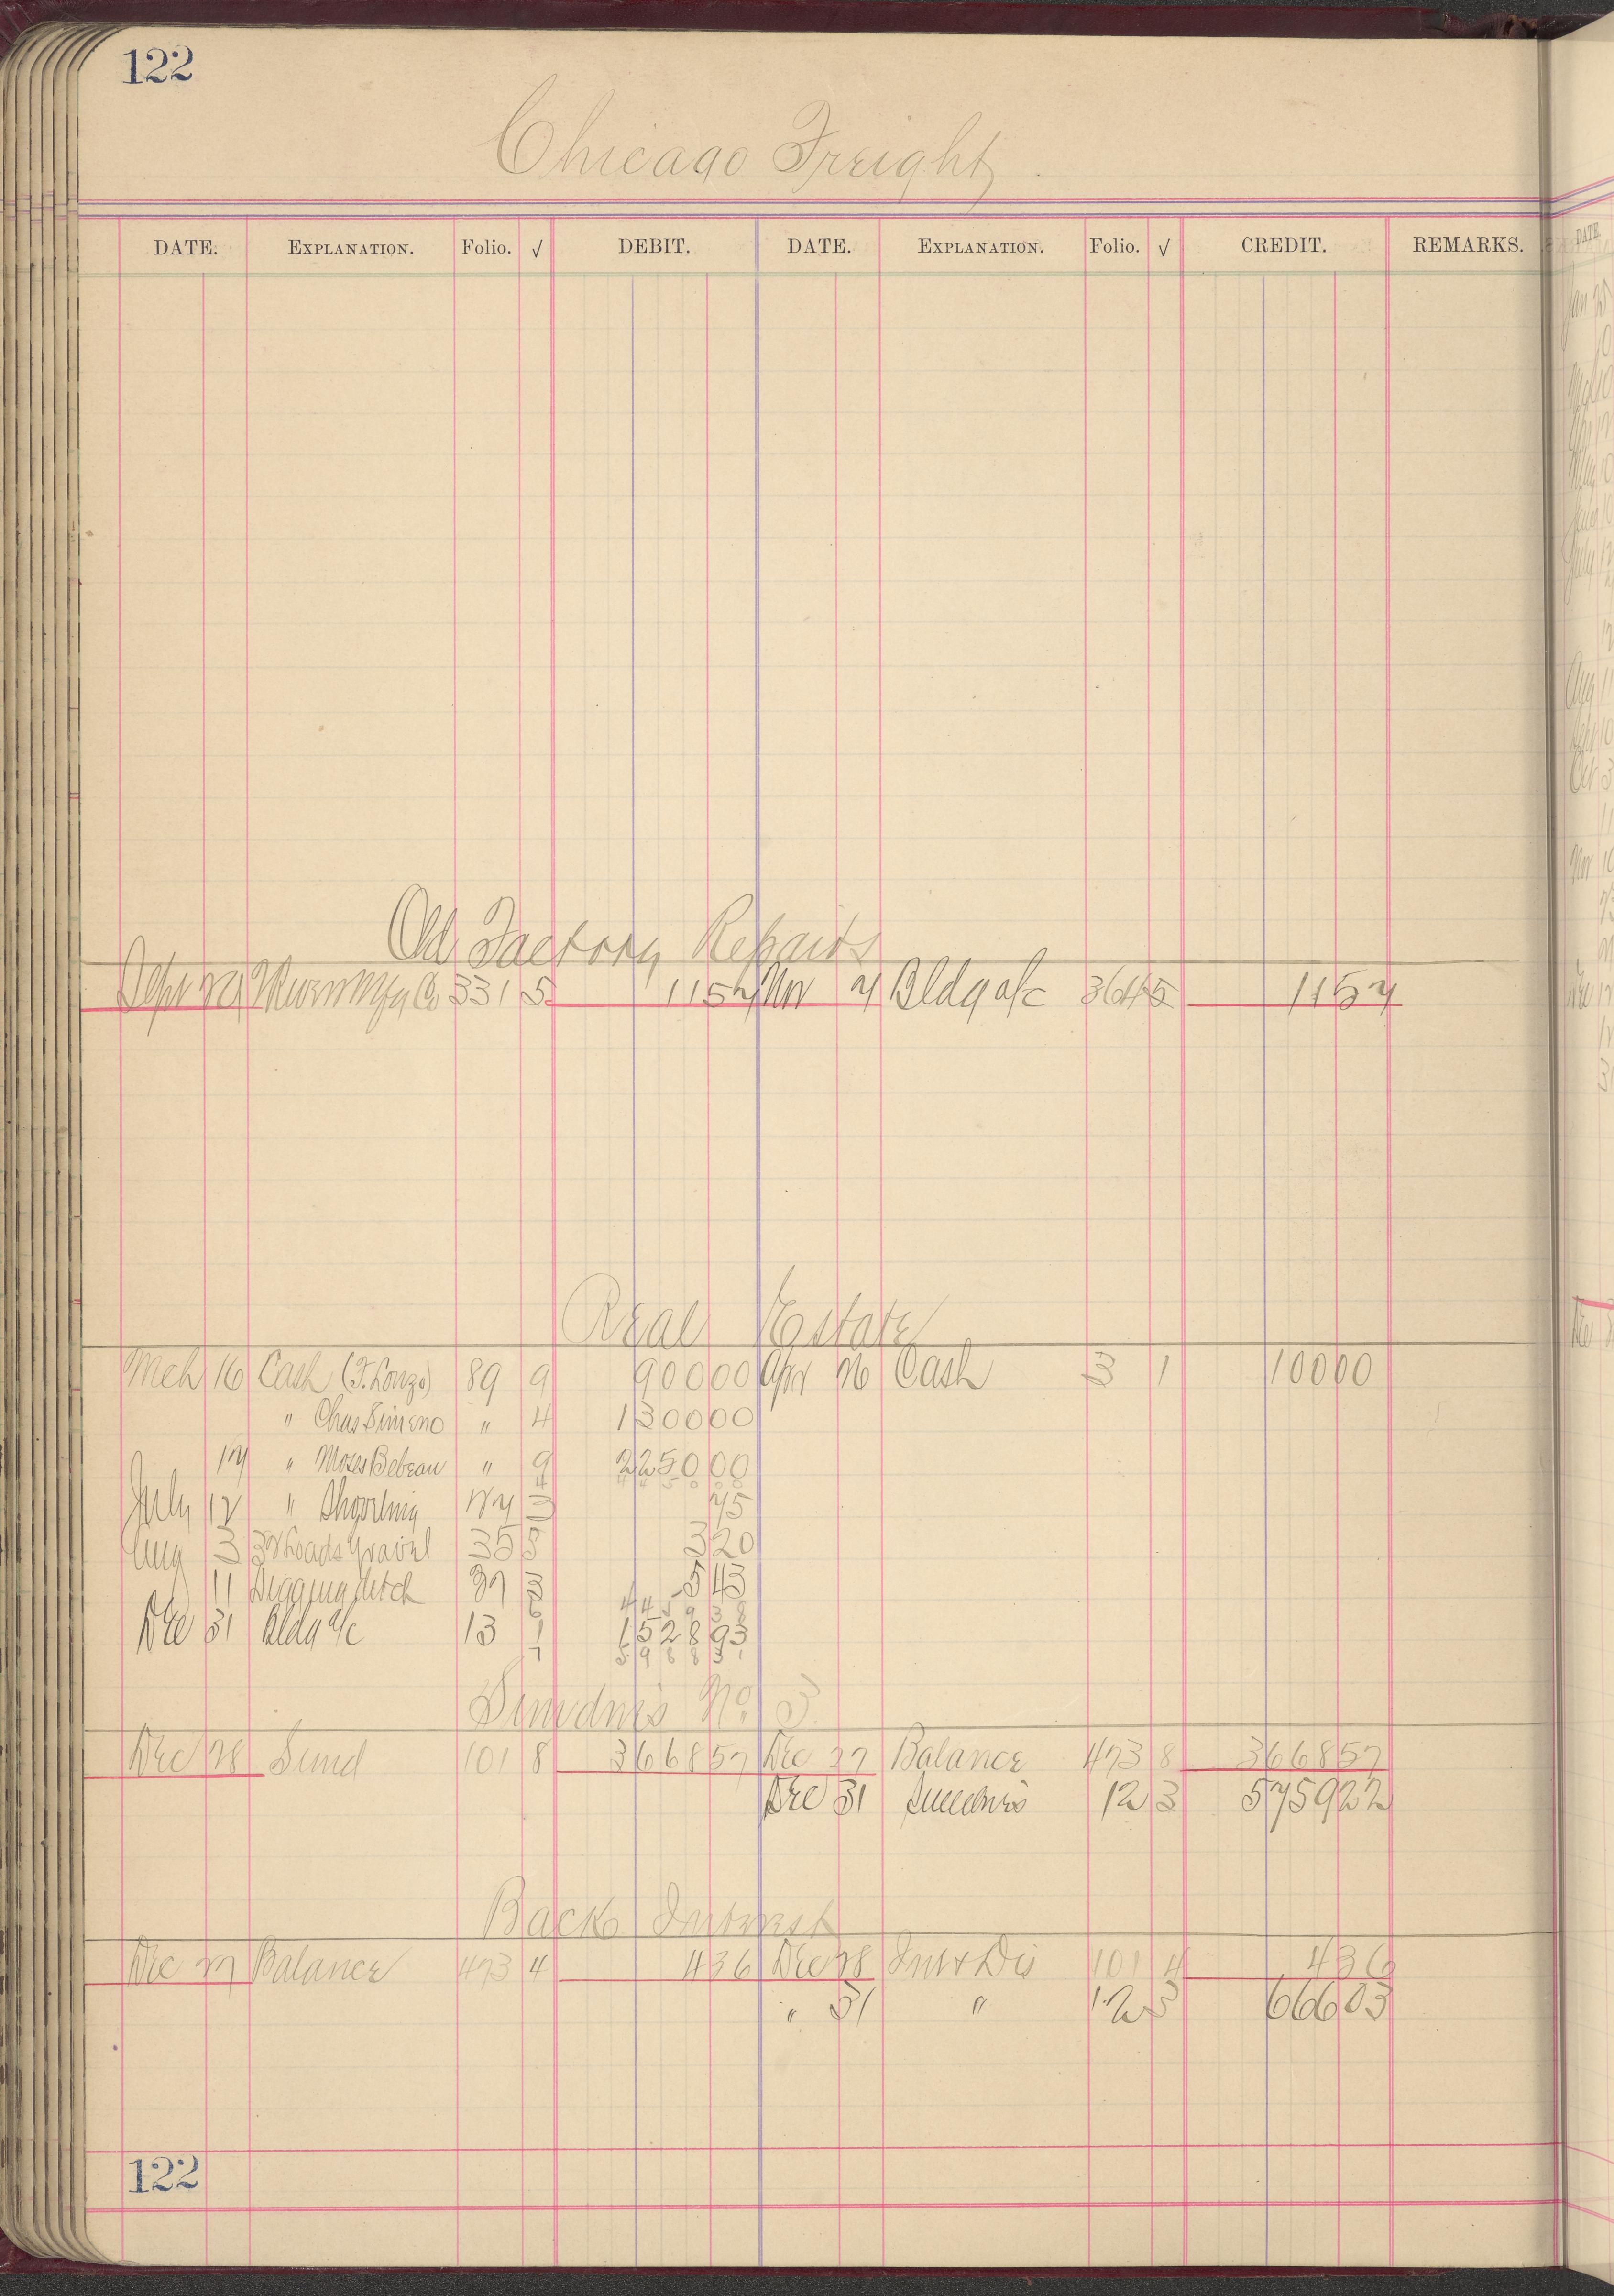 122
Chicago Freight
DATE. EXPLANATION. Folio. √ DEBIT. DATE. EXPLANATION. Folio. √ CREDIT. REMARKS.
Old Factory Repairs
Sept Mfg Co 331 5 1157 Nov 7 Bldg a/c 364 5 1157
Real Estate
Mch 16 Cash 89 9 90000 Apr 26 Cash 3 1 10000
" Chas Simeno " 4 130000
17 " Moses Bebeau " 9 225000
July 12 " 3 75
Aug 3 Loads Gravel 35 5 320
11 Digging ditch 37 3 543
44 59 38
Dec 31 Bldg a/c 13 1 152893
Sundries No. 3
Dec 28 Sund 101 8 366857 Dec 27 Balance 473 8 366857
Dec 31 Sundries 12 3 575922
Back Interest
Dec 27 Balance 473 4 436 Dec 28 Int & Dis 101 4 436
" 31 " 12 5 66603
122